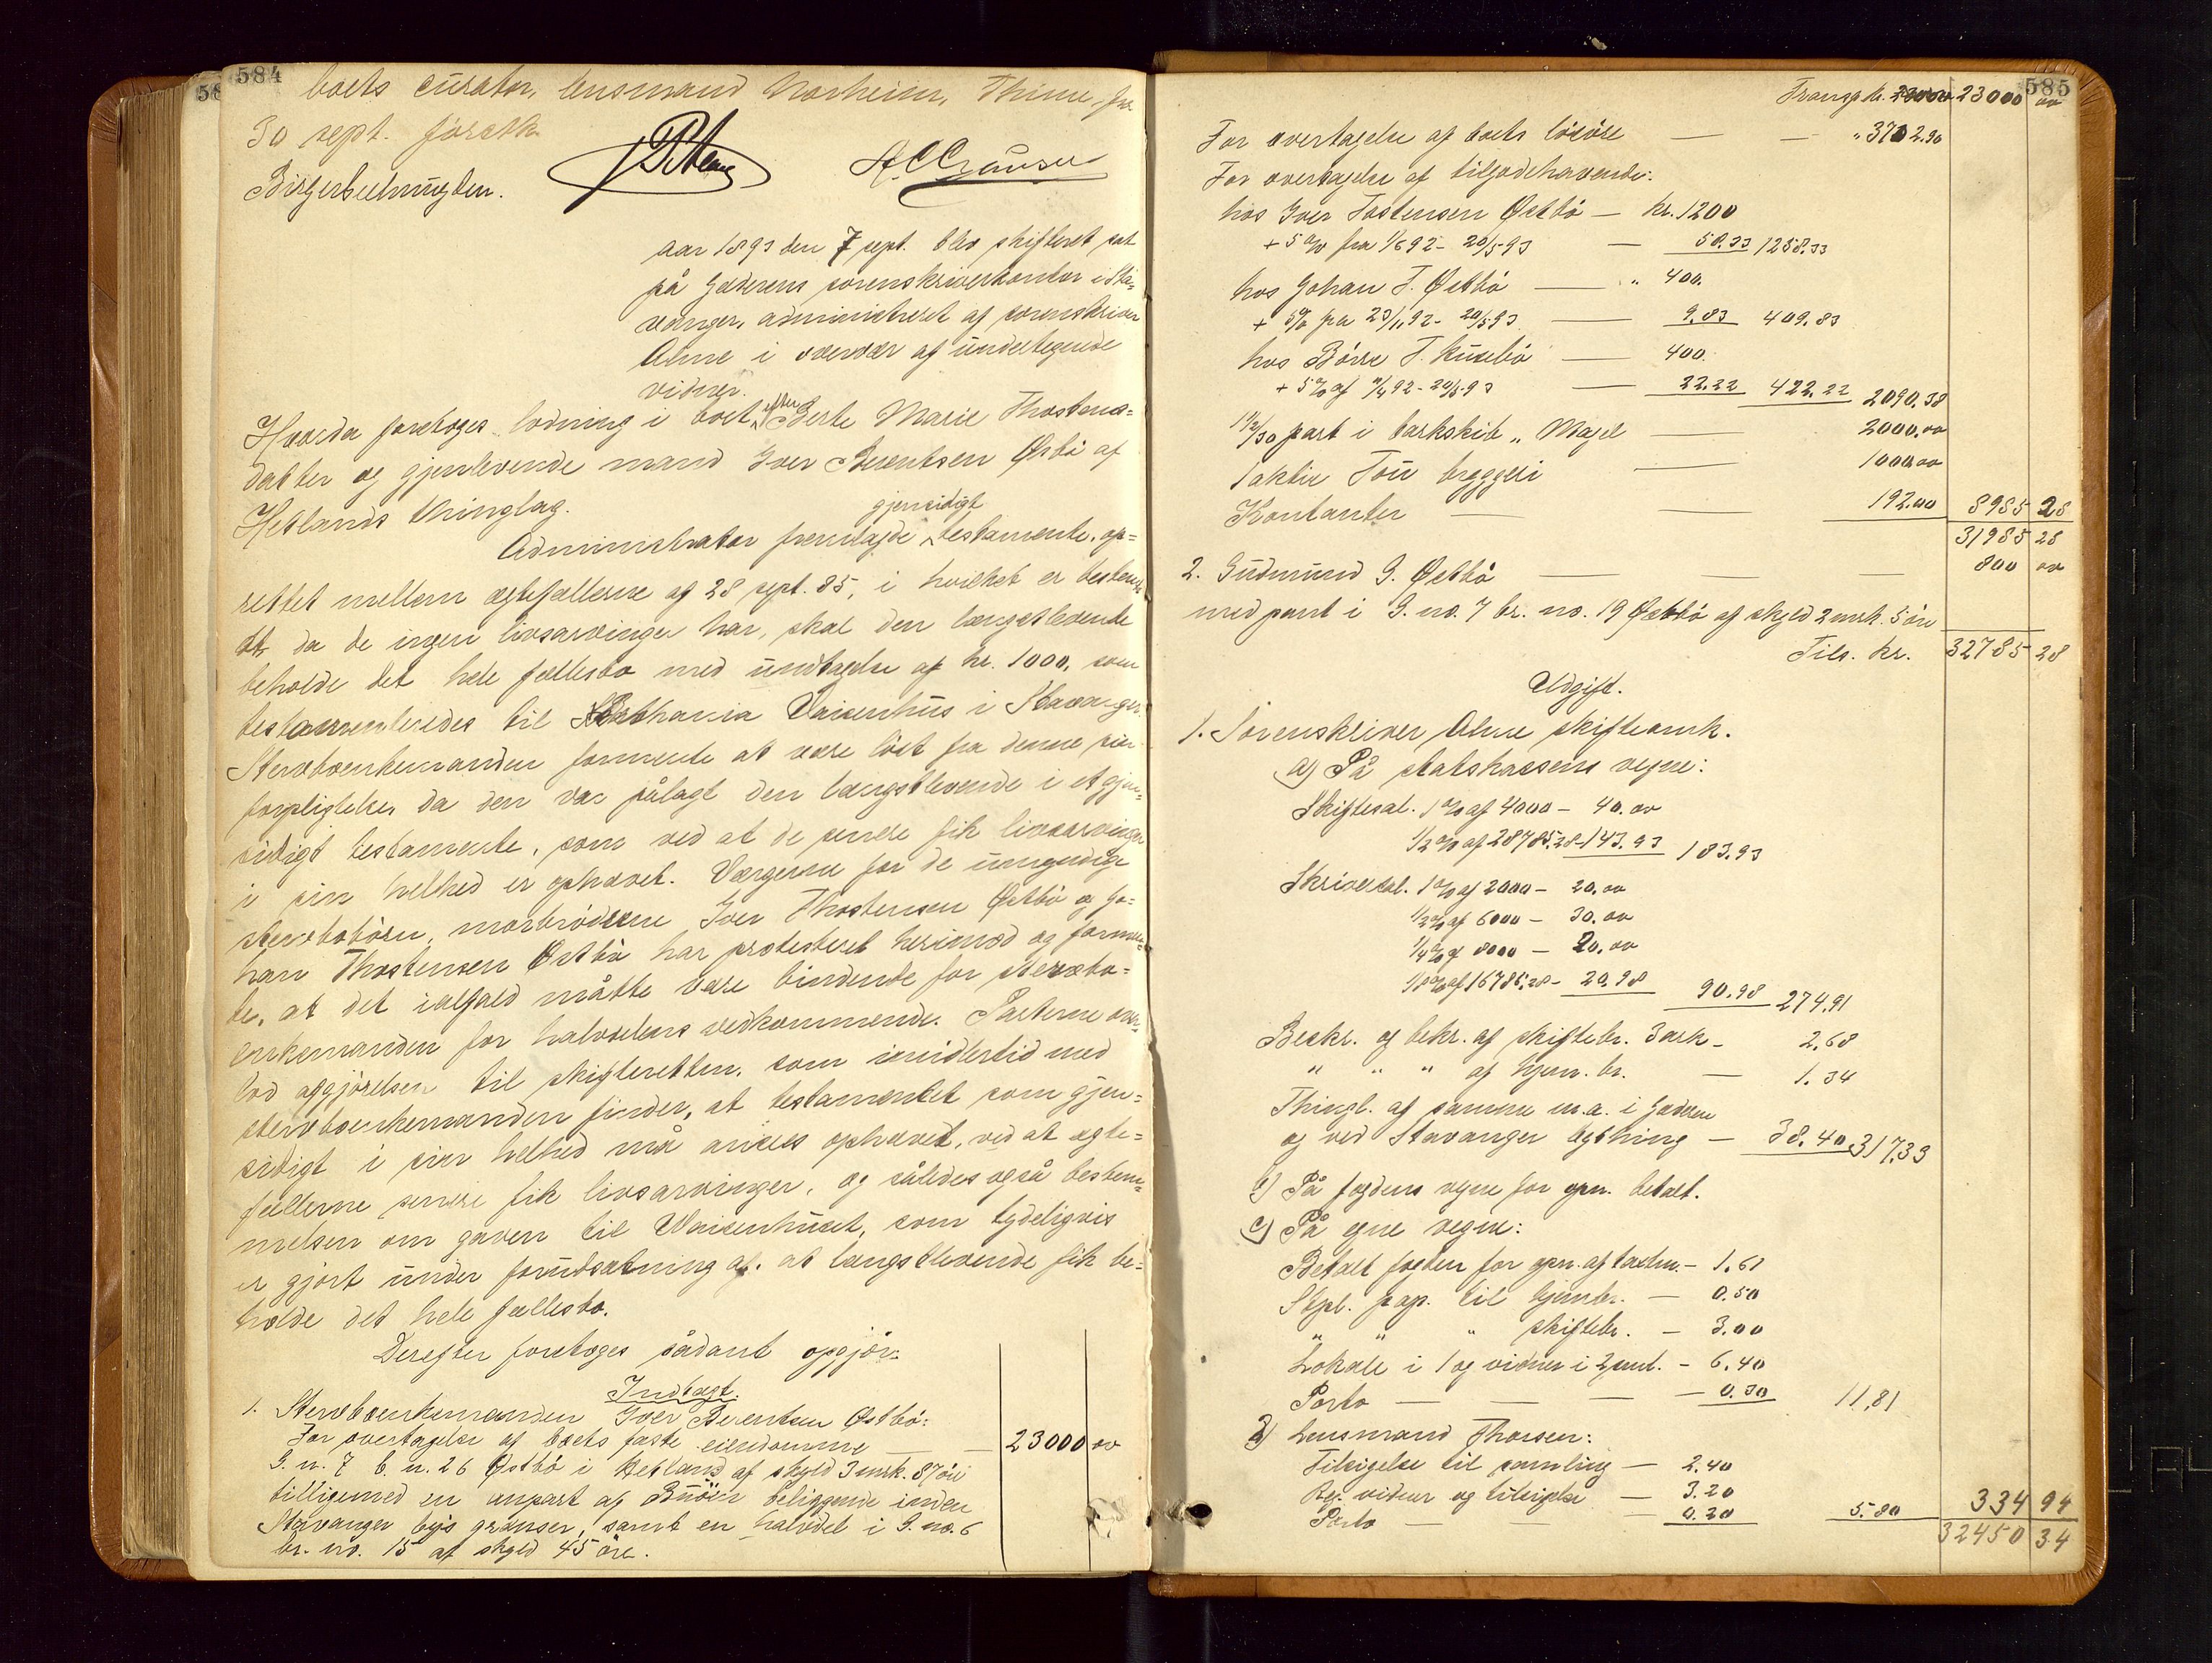 584
boets curator, lensmand Norheim, Thime for
30 sept.
Birger
aar 1893 den 7 sept. blev skifteret sat
på Jæderens sorenskriverkontor i Sta-
vanger, administreret af sorenskriver
Alme i overvær af undertegnede
vidner.
Hvorda foretoges lodning i boet efter Berte Marie Thostens-
datter og gjenlevende mand Iver Berentsen Østbö af
Hetlands thinglag.
Administrator fremlagde gjensidigt testamente, op-
rettet mellem ægtefællerne af 28 sept. 85, i hvilket er bestemt
at da de ingen livsarvinger har, skal den længstlevende
beholde det hele fællesbo med undtagelse af kr. 1000, som
testamenteredes til Vaisenhus i Stavanger.
Stervboenkemanden formente at være löst fra denne sin
forpligtelse, da den var pålagt den længstlevende i et gjen-
sidigt testamente, som ved at de senere fik livsarvinger
i sin helhed er ophævet. Værgerne for de umyndige
stervbobörn, morbrödrene Iver Thostensen Østbö og Jo-
han Thostensen Østbö har protesteret herimod og formen-
te, at det ialfald måtte være bindende for stervbo-
enkemanden for halvdelens vedkommende. Parterne over-
lod afgjörelsen til skifteretten, som imidlertid med
stervboenkemanden finder, at testamentet som gjen-
sidigt i sin helhed må ansees ophævet, ved at ægte-
fællerne senere fik livsarvinger, og således også bestem-
melsen om gaven til Vaisenhuset, som tydeligvis
er gjort under forudsætning af, at længstlevende fik be-
holde det hele fællesbo.
Derefter foretoges sådant opgjör:
Indtægt.
1. Stervboenkemanden Iver Berentsen Østbö:
For overtagelse af boets faste eiendomme — — 23000 00
G. n. 7 b. n. 26 Østbö i Hetland af skyld 3 mrk. 87 öre
tilligemed en anpart af Buöen beliggende inden
Stavanger bys grænser, samt en halvdel i G. no. 6
br. no. 15 af skyld 45 öre.
585
Transp. kr. 23000 00
For overtagelse af boets lösöre — — " 3702.90
For overtagelse af tilgodehavende:
hos Iver Tostensen Østbö — kr. 1200
+ 5 % fra 1/6 92 - 20/5 93 — 58.33 1258.33
hos Johan T. Østbö — " 400.
+ 5% fra 23/11 92 - 20/5 93 — 9.83 409.83
hos Börre T. — 400.
+ 5 % af 92 - 20/5 93 — 22.22 422.22 2090.38
part i barkskib „ — 2000.00
1 aktie Tou bryggeri — 1000.00
Kontanter — — 192.00 8985 28
31985 28
2. Gudmund G. Østbö — — — 800 00
med pant i G. no. 7 br. no. 19 Østbö af skyld 2 mrk. 5 öre
Tils. kr. 32785 28
Udgift.
1. Sorenskriver Alme skifteomk.
a) På statskassens vegne:
Skiftesal. 1 % af 4000 — 40.00
1/2 % af 28785.28 - 143.93 183.93
Skriversal. 1 % af 2000 — 20.00
1/2 % af 6000 — 30.00
1/4 % af 8000 — 20.00
1/8 % af 16785.28 - 20.98 90.98 274.91
Beskr. og bekr. af skiftebr. 3 ark — 2.68
" " " af hjem. br. — 1.34
Thingl. af samme m.a. i Jæderen
og ved Stavanger bything — 38.40 317.33
b) På fogdens vegne for opn. betalt.
c) På egne vegne:
Betalt fogden for opn. af taxten. — 1.61
Stpl. pap. til hjembr. — 0.50
" " " skiftebr. — 3.00
Lokale i 1 og vidner i 2 smt. — 6.40
Porto — — — 0.30 11.81
d) Lensmand Thorsen:
Tilsigelse til samling — 2.40
Bet. vidner og tilsigelse — 3.20
Porto — — — 0.20 5.80 334 94
32450 34